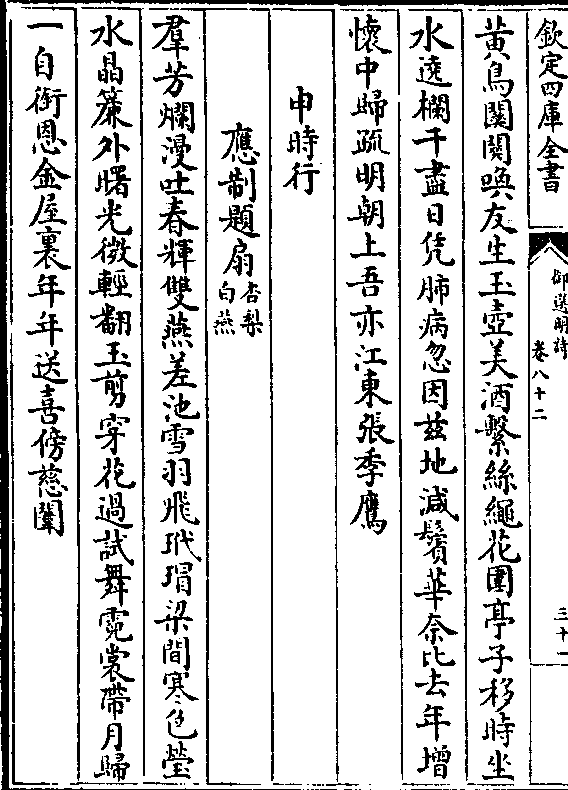 欽定四庫全書
御選明詩
卷八十二
三十一
黄鳥關關喚友生玉壺美酒繫絲繩花圍亭子移時坐
水遶欄干盡日凭肺病忽因兹地減鬢華奈比去年增
懷中歸疏明朝上吾亦江東張季鷹
申時行
應制題扇
杏梨
白燕
羣芳爛漫吐春輝雙燕差池雪羽飛玳瑁梁間寒色瑩
水晶簾外曙光微輕翻玉剪穿花過試舞霓裳帶月歸
一自銜恩金屋裏年年送喜傍慈闈